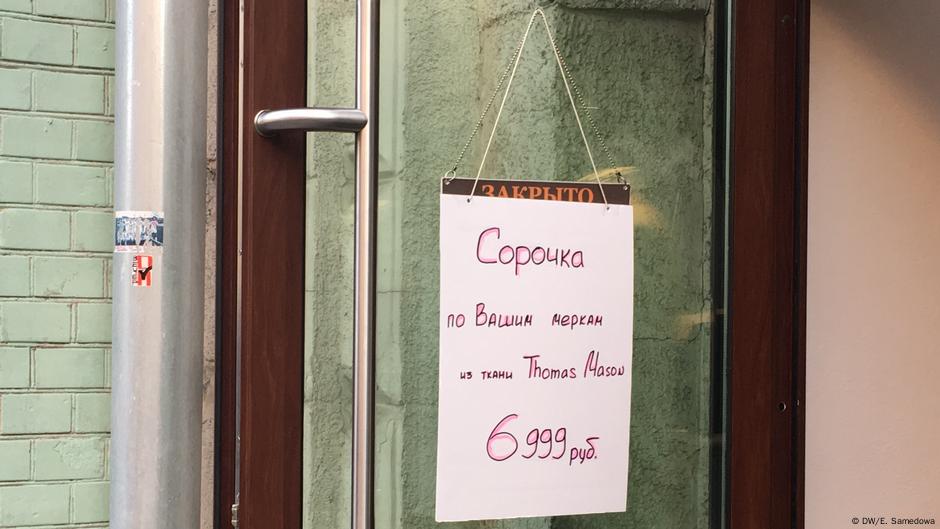 ЗАКРЫТО
Сорочка
по Вашим меркам
из ткани Thomas Mason
6 999 руб.
© DW/E. Samedowa